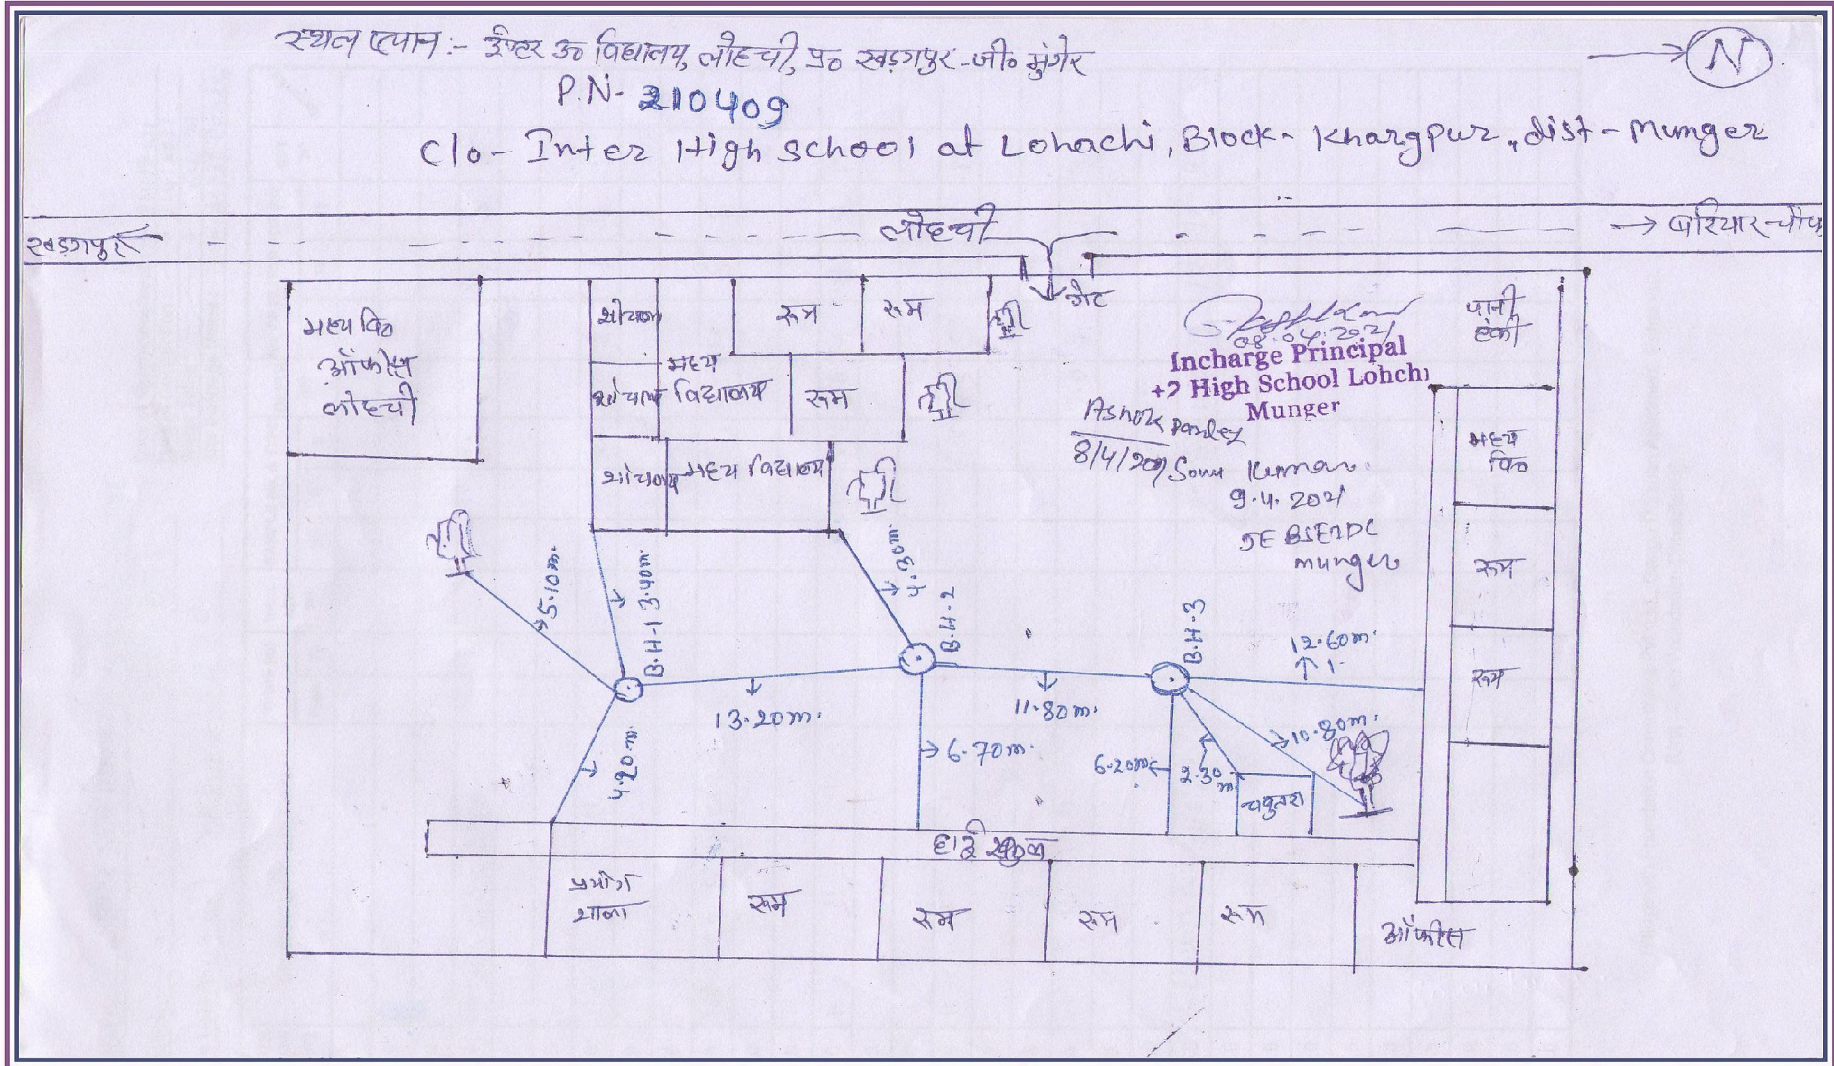 स्थल प्लान:- ईण्टर उ० विद्यालय, लोहची, प्र० खड़गपुर-जी० मुंगेर
N
P.N- 210409
C/o- Inter High school at Lohachi, Block- Khargpur, dist- Munger
खड़गपुर
लोहची
बरियार-चौक
गेट
मध्य वि०
ऑफीस
लोहची
शौचाल
रूम
रूम
पानी
टंकी
मध्य
शौचाल
विद्यालय
रूम
शौचालय
मध्य विद्यालय
08.04.2021
Incharge Principal
+2 High School Lohchi
Munger
Ashok Pandey
8/4/2021
Sonu Kumar
9.4.2021
JE BSEIDC
munger
मध्य
वि०
रूम
रूम
5.10m.
3.40m.
4.30m.
B.H-1
B.H-2
B.H-3
12.60m.
13.20m.
11.80m.
10.80m.
4.20m.
6.70m.
6.20m
2.30
m
चबुतरा
हाई स्कुल
प्रयोग
शाला
रूम
रूम
रूम
रूम
ऑफीस